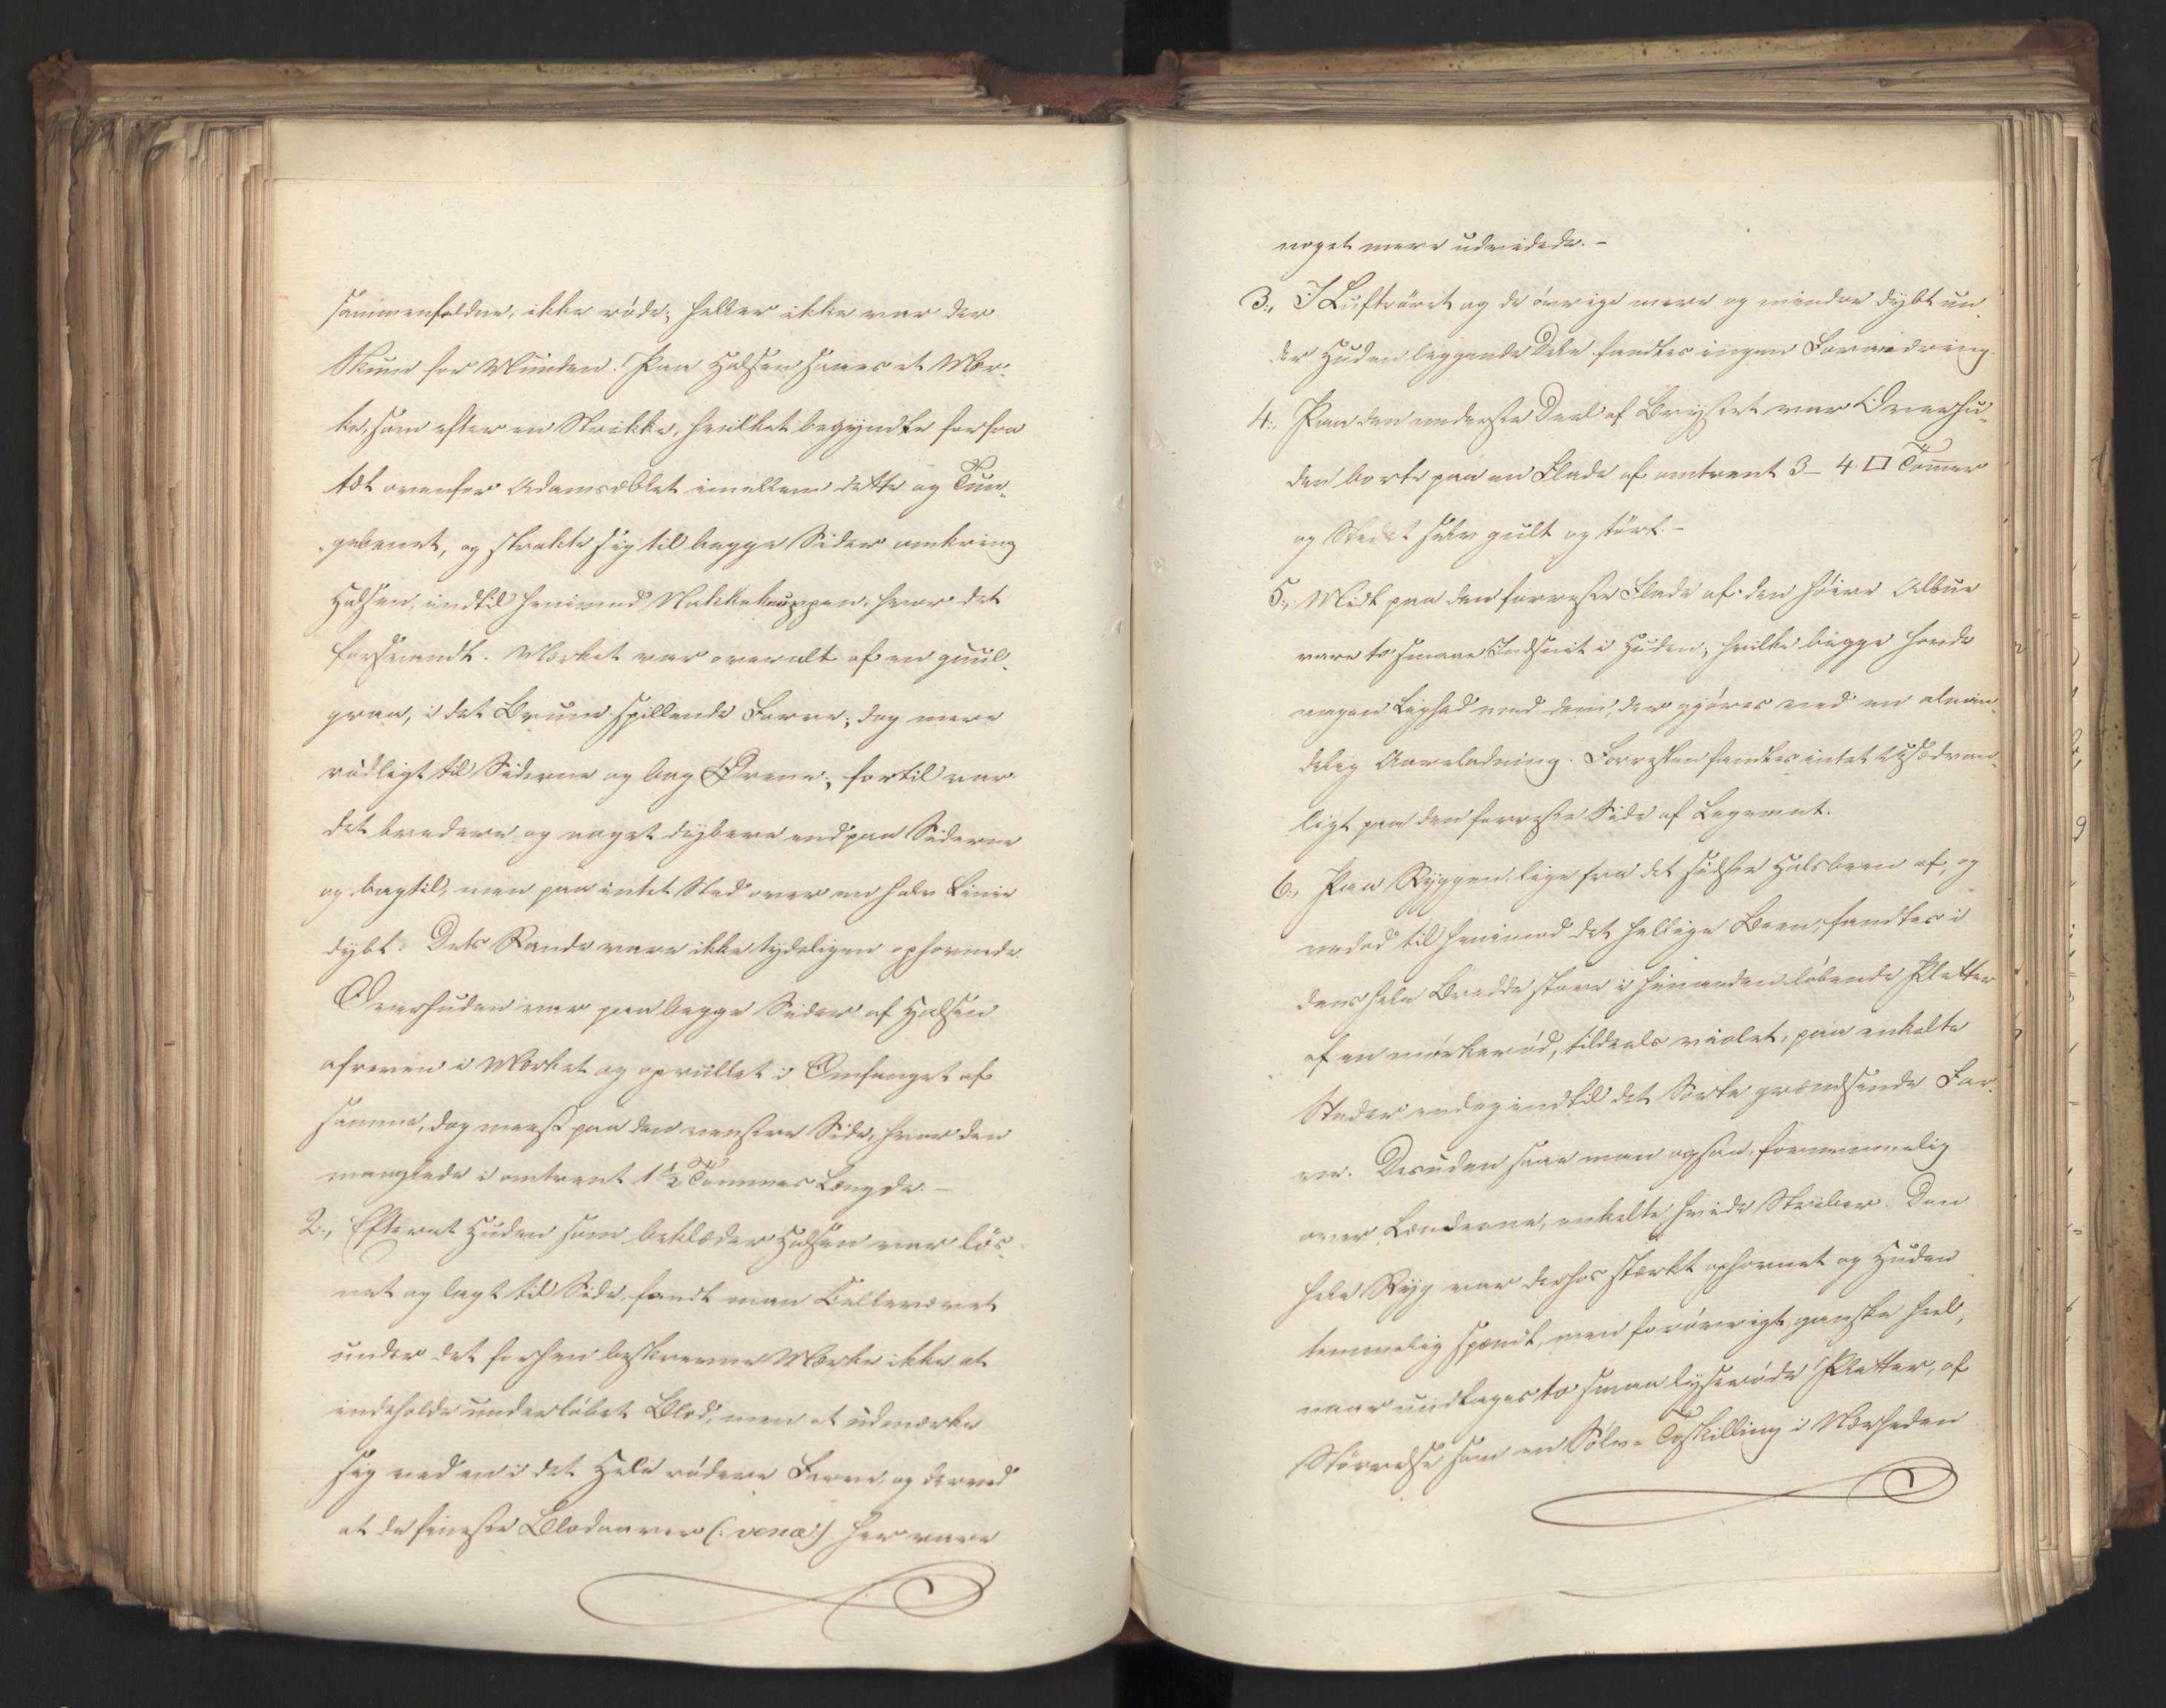 sammenfaldne, ikke røde; heller ikke var der
Skum for Munden. Paa Halsen saaes et Mær-
ke, som efter en Strikke, hvilket begyndte forfra
tæt ovenfor Adamsæblet imellem dette og Tun-
gebenet, og strakte sig til begge Sider omkring
Halsen, indtil henimod Nakkekuppen, hvor det
forsvandt. Mærket var overalt af en guul-
graa, i det Brune spillende Farve; dog mere
rødligt til Siderne og bag Ørene; fortil var
det bredere og noget dybere end paa Siderne
og bagtil, men paa intet Sted over en halv Linie
dybt. Dets Rande vare ikke tydeligen ophovnede.
Overhuden var paa begge Sider af Halsen
afreven i Mærket og oprullet i Omfanget af
samme, dog meest paa den venstre Side, hvor den
manglede i omtrent 1 1/2 Tommes Længde. -
2., Efterat Huden som beklæder Halsen var løs-
net og lagt til Side, fandt man Cellevævet
under det forhen beskrevne Mærke ikke at
indeholde underløbet Blod, men at udmærke
sig ved en i det Hele rødere Farve, og derved
at de fineste Blodaarer (: venæ:) her vare
noget mere udvidede. -
3., I Luftrøret og de øvrige mere og mindre dybt un-
der Huden liggende Dele fandtes ingen Forandring.
4., Paa den nederste Deel af Brystet var Overhu-
den borte paa en Flade af omtrent 3 - 4 □ Tommer
og Stedet selv guult og tørt. -
5., Midt paa den forreste Flade af den høire Albue
vare to smaae Indsnit i Huden, hvilke begge havde
megen Liighed med dem, der gjøres ved en almin-
delig Aareladning. Forresten fandtes intet Usædvan-
ligt paa den forreste Side af Legemet.
6., Paa Ryggen, lige fra det sidste Halsbeen af, og
nedad til henimod det hellige Been, fandtes i
dens hele Bredde store i hinanden løbende Pletter
af en mørkerød, tildeels violet, paa enkelte
Steder endog indtil det Sorte grændsende Far-
ve. Desuden saae man ogsaa, fornemmelig
over Lænderne, enkelte hvide Striber. Den
hele Ryg var derhos stærkt ophovnet og Huden
temmelig spændt, men forøvrigt ganske heel,
naar undtages to smaa lyserøde Pletter, af
Størrelse som en Sølv-Toskilling i Nærheden